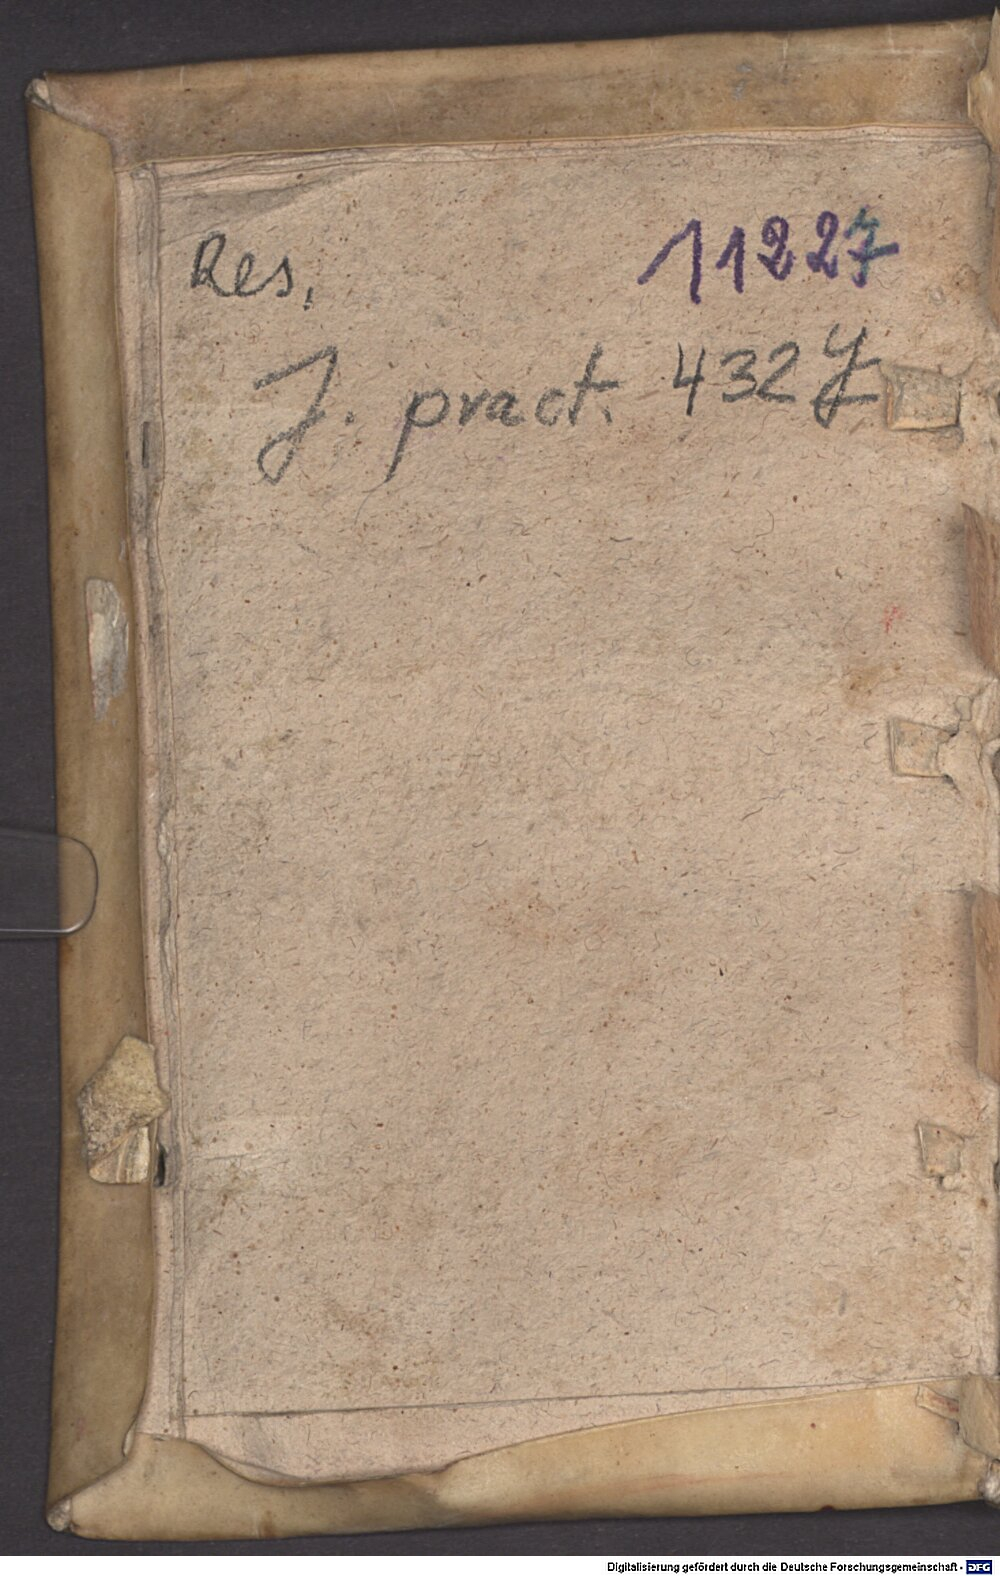 Res,
11227
J. pract. 432 y
Digitalisierung gefördert durch die Deutsche Forschungsgemeinschaft - DFG